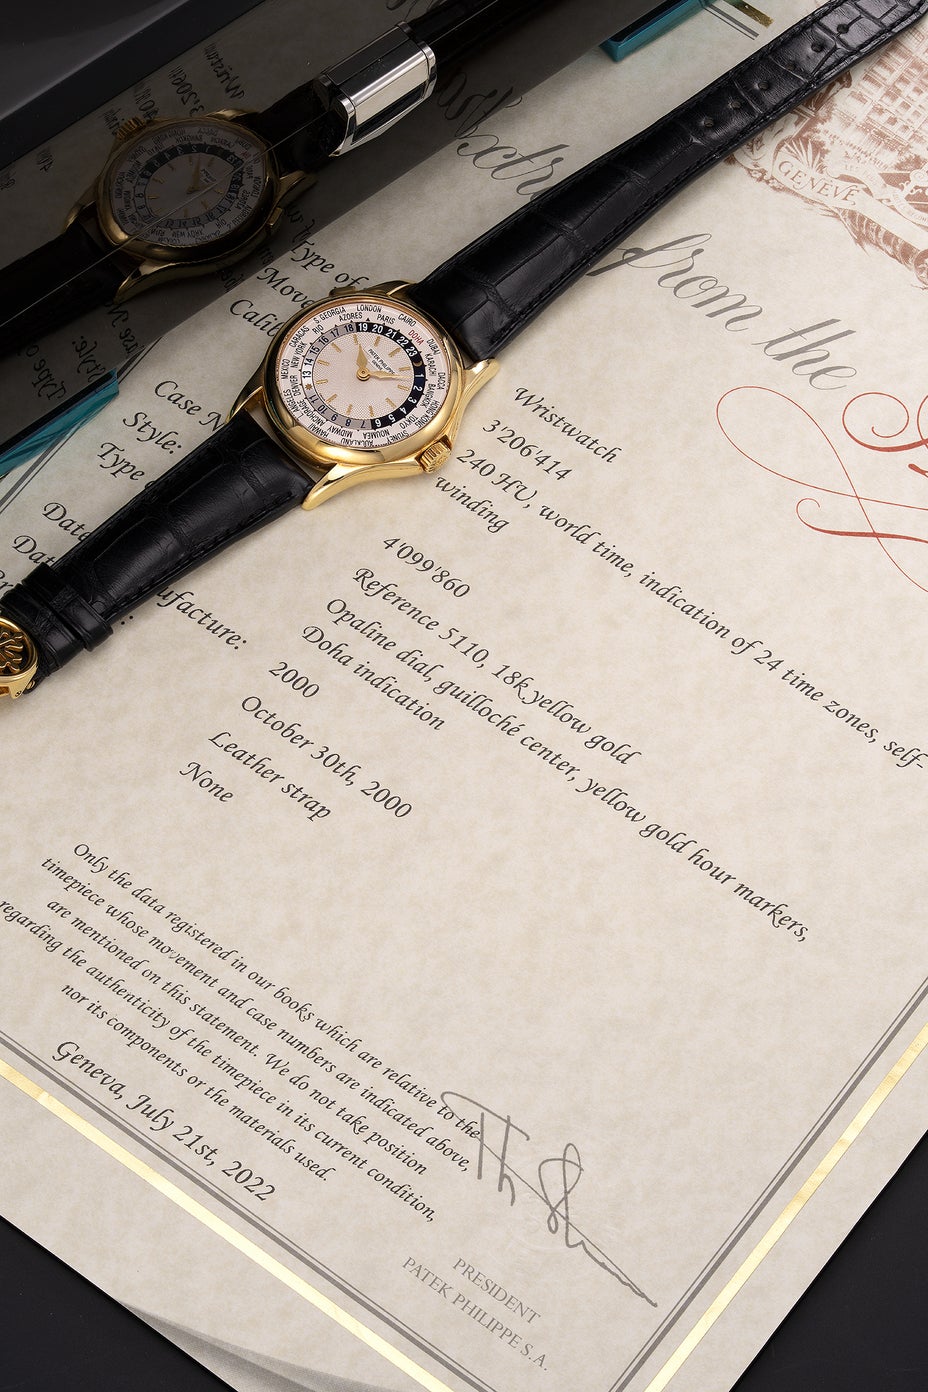 Extr
from the
GENEVE
Type of
Move
Calib
Case N
Style:
Type
Date
Dat
ufacture:
Wristwatch
3'206'414
240 HU, world time, indication of 24 time zones, self-
winding
4'099'860
Reference 5110, 18k yellow gold
Opaline dial, guilloché center, yellow gold hour markers,
Doha indication
2000
October 30th, 2000
Leather strap
None
Only the data registered in our books which are relative to the
timepiece whose movement and case numbers are indicated above,
are mentioned on this statement. We do not take position
regarding the authenticity of the timepiece in its current condition,
nor its components or the materials used.
Geneva, July 21st, 2022
PRESIDENT
PATEK PHILIPPE S.A.
LONDON PARIS CAIRO DOHA DUBAI KARACHI DACCA BANGKOK HONG KONG TOKYO SYDNEY NOUMEA AUCKLAND MIDWAY HAWAII ANCHORAGE LOS ANGELES DENVER MEXICO NEW YORK CARACAS RIO S.GEORGIA AZORES
19 20 21 22 23 1 2 3 4 5 6 7 8 9 10 11 13 14 15 16 17 18
PATEK PHILIPPE
GENEVE